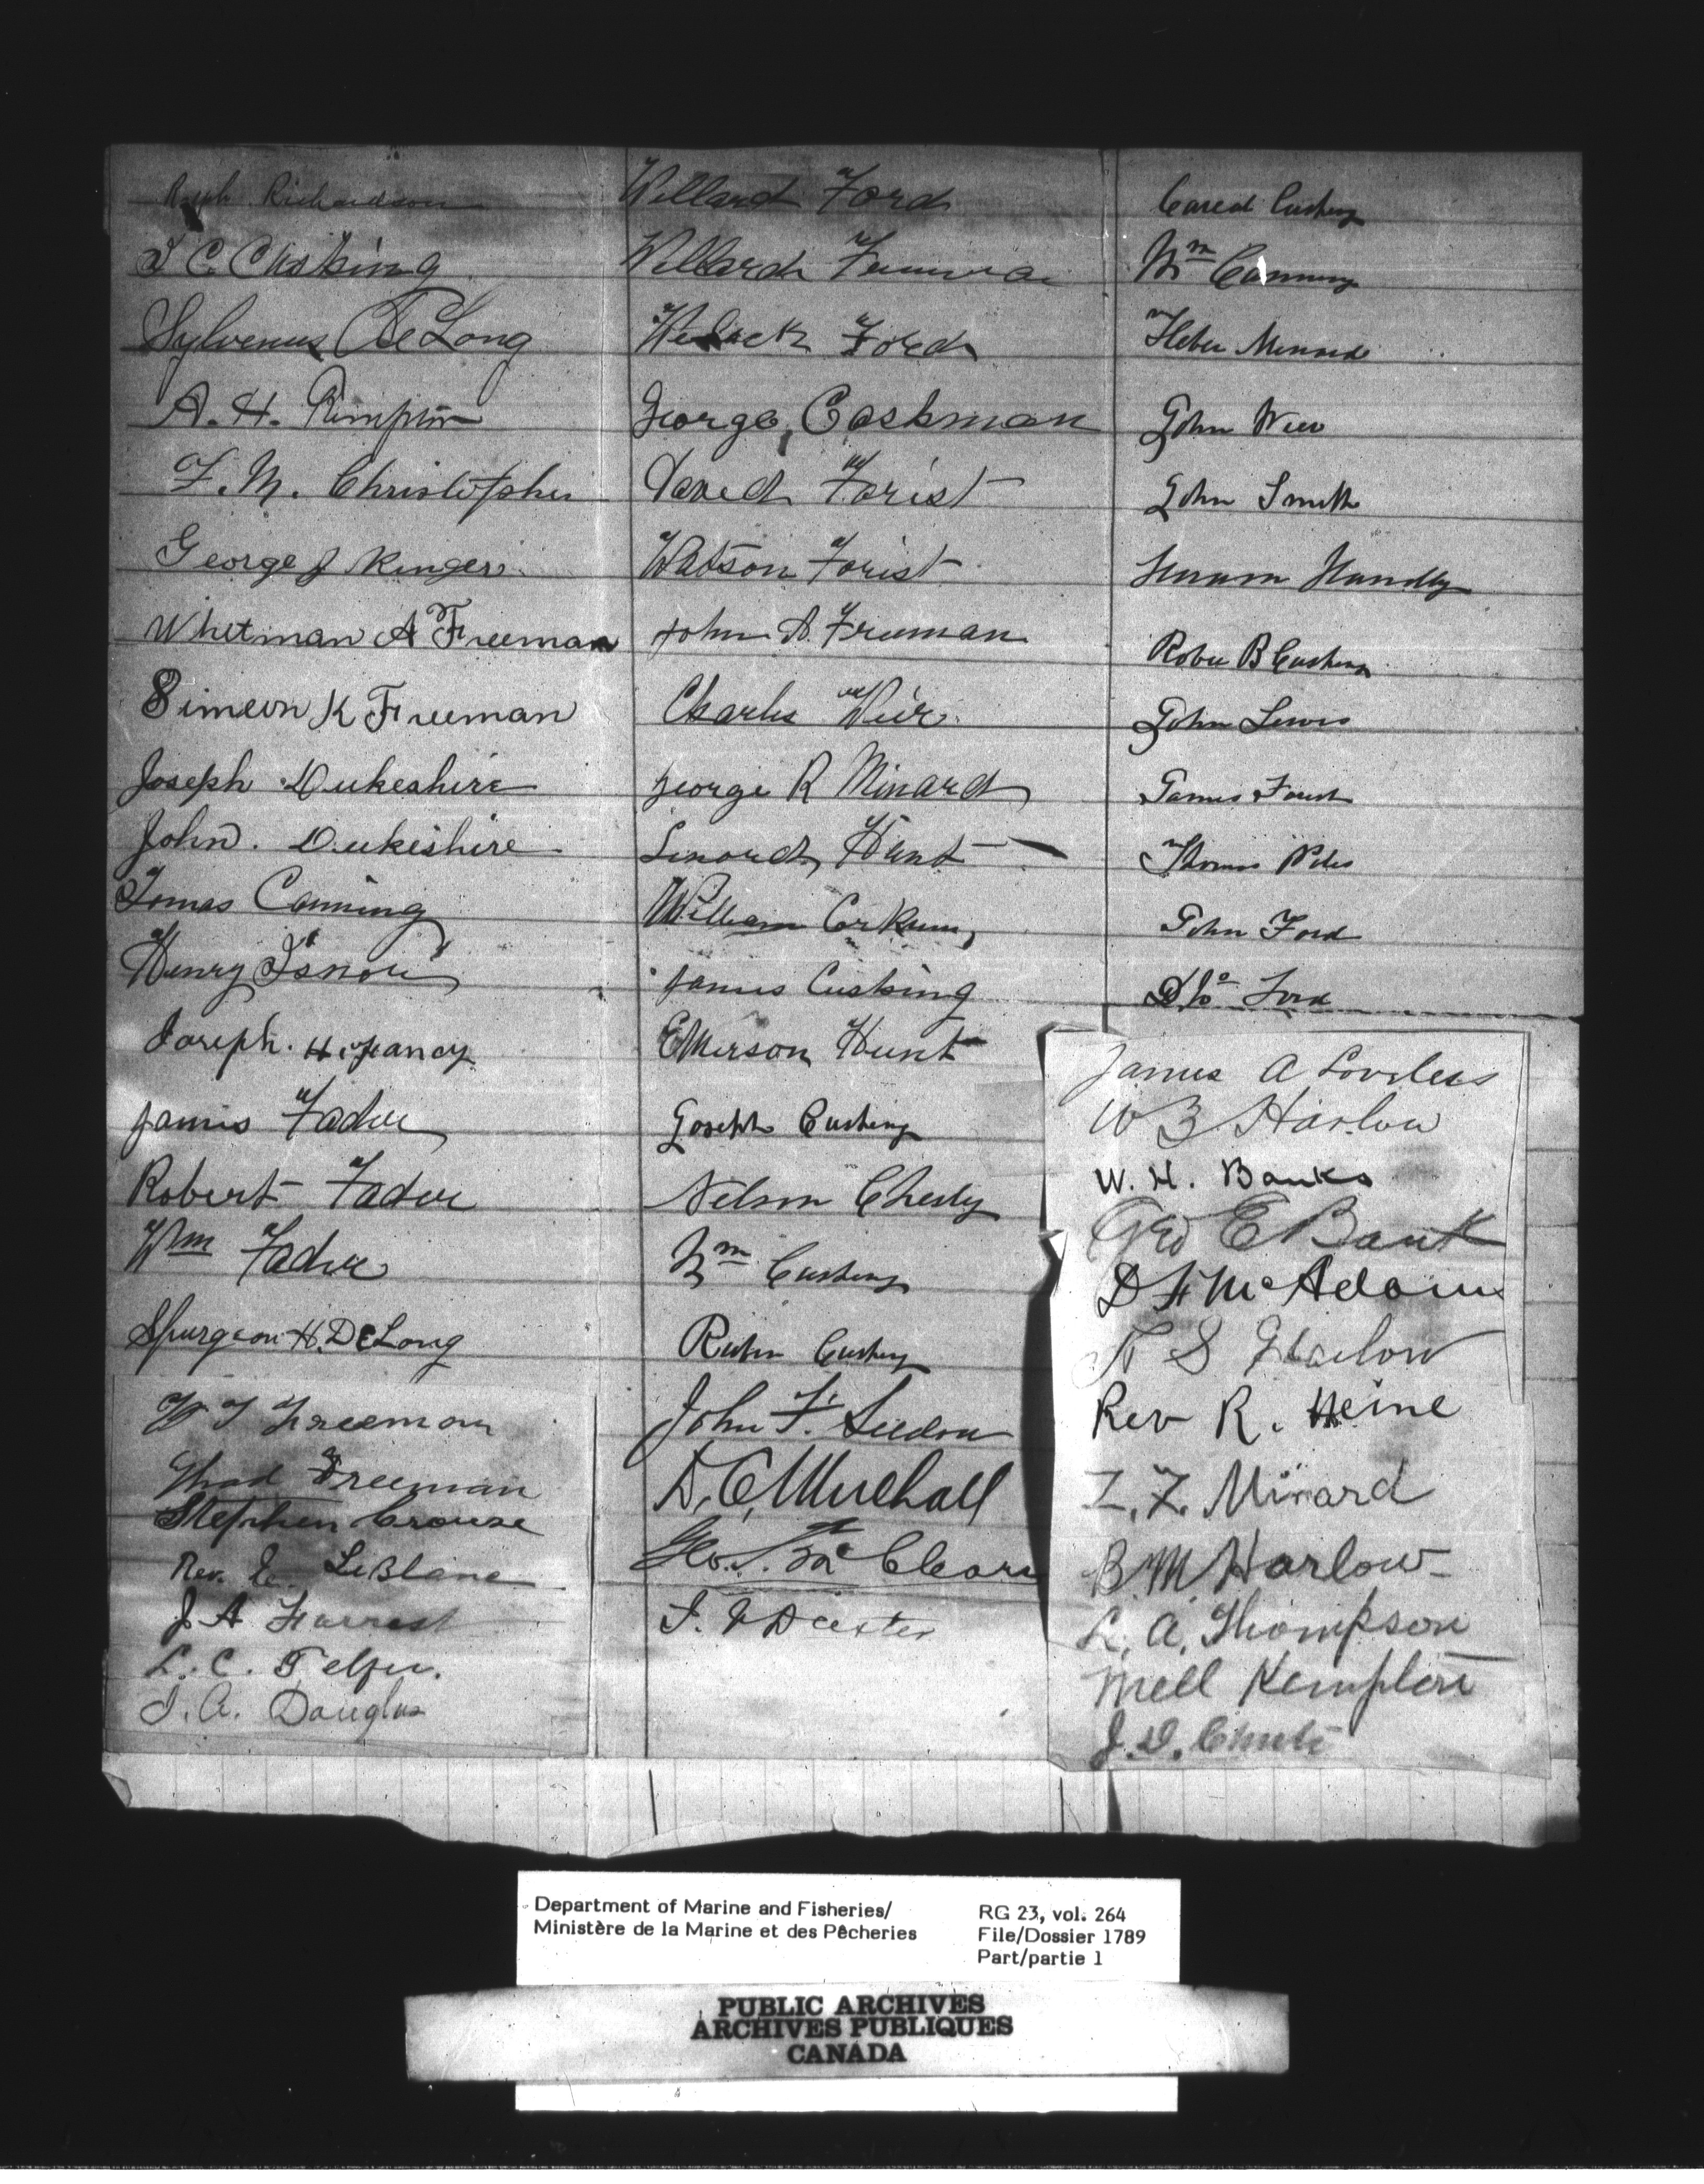 Richardson
C. Cushing
Sylvenus DeLong
A. H. Kimpton
F. M. Christopher
George J Ringer
Whetman A Freeman
Simeon K Freeman
Joseph Dukeshire
John. Dukeshire
Tomas Canning
Henry Isnour
Joseph. H.
James Fader
Robert Fader
Wm Fader
Spurgeon H. DeLong
W T Freeman
Thad Freeman
Stephen Crouse
Rev. LeBlanc
J A Forrest
L. C. Telfer.
J. A. Douglas
Willard Ford
Willard
Ford
George Coshman
Forist
Watson Forist
John A. Freeman
Charles Weir
George R Minard
Linord Hunt
William Corkum
James Cushing
Emerson Hunt
Joseph Cushing
Nelson Chesly
Wm Cushing
Cushing
John F.
D. C. Mulhall
Geo. Mc
Cushing
Wm Canning
Heber Minard
John Weir
John Smith
Robie B Cushing
John Lewis
James Forist
Thomas
John Ford
Do Ford
James A Loveless
W B Harlow
W. H. Banks
Geo E Bank
D F McAdams
N S Harlow
Rev R. Heine
Z. Minard
B M Harlow
L. A. Thompson
Mell Kempton
J. D. Chute
Department of Marine and Fisheries/
Ministère de la Marine et des Pêcheries
RG 23, vol. 264
File/Dossier 1789
Part/partie 1
PUBLIC ARCHIVES
ARCHIVES PUBLIQUES
CANADA